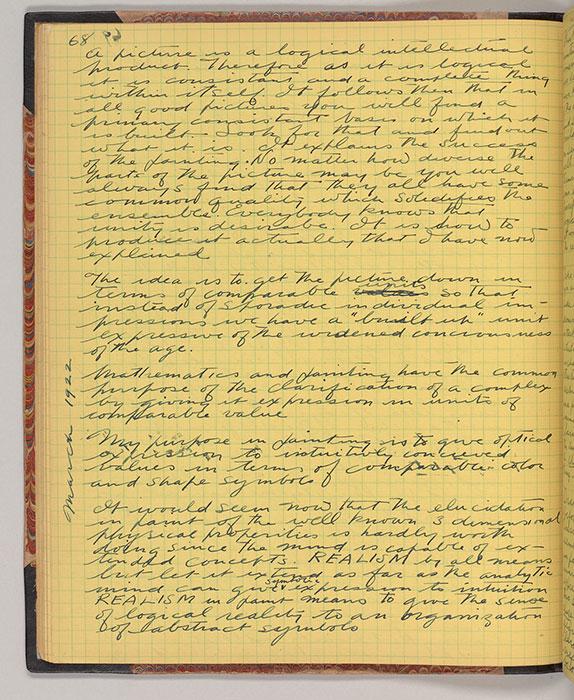 68
A picture is a logical intellectual
product. Therefore as it is logical
it is consistant and a complete thing
within itself. It follows then that in
all good pictures you will find a
primary consistant basis on which it
is built. Look for that and find out
what it is. It explains the success
of the painting. No matter how diverse the
parts of the picture may be you will
always find that they all have some
common quality which solidifies the
ensemble. Everybody knows that
unity is desirable. It is how to
produce it actually that I have now
explained
The idea is to get the picture down in
terms of comparable units so that
instead of sporadic individual im-
pressions we have a "built up" unit
expressive of the widened conciousness
of the age.
Mathematics and painting have the common
purpose of the clarification of a complex
by giving it expression in units of
comparable value
March 1922
My purpose in painting is to give optical
expression to intuitively concieved
values in terms of comparable color
and shape symbols
It would seem now that the elucidation
in paint of the well known 3 dimensional
physical properties is hardly worth
doing since the mind is capable of ex-
tended concepts. REALISM by all means
but let it extend as far as the analytic
mind can give symbolic expression to intuition
REALISM in paint means to give the sense
of logical reality to an organization
of abstract symbols